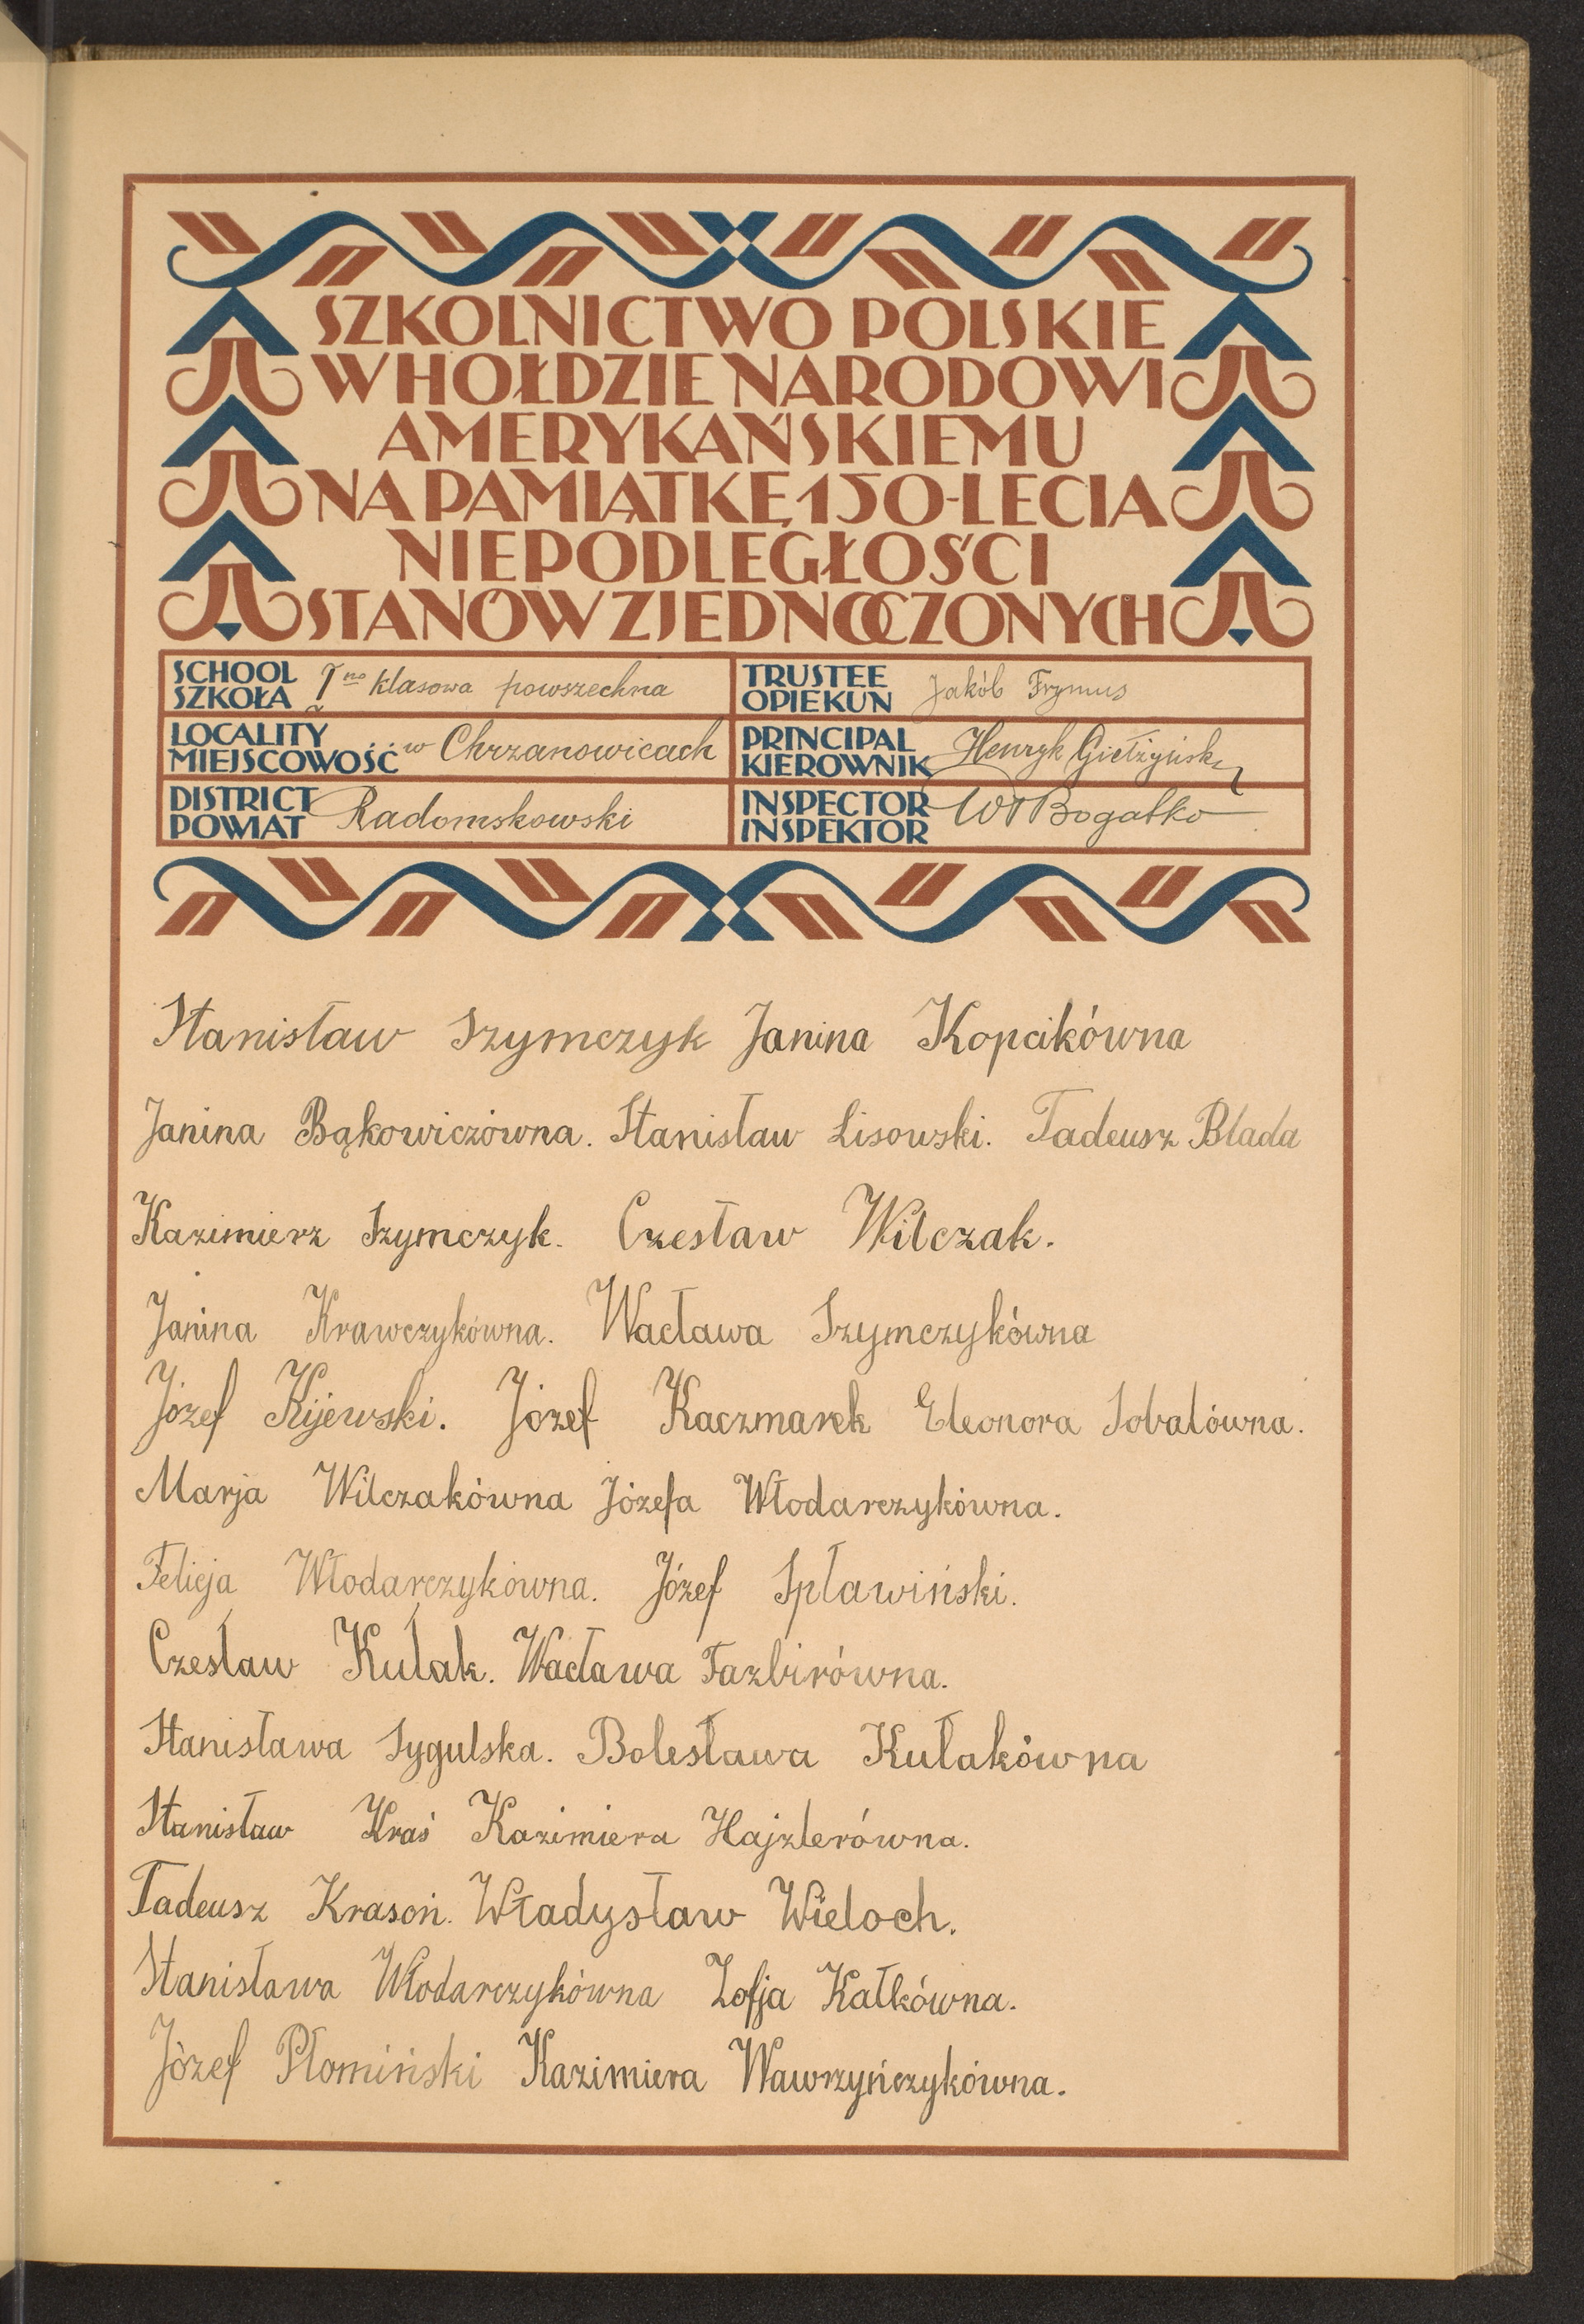 SZKOLNICTWO POLSKIE
W HOŁDZIE NARODOWI
AMERYKAŃSKIEMU
NA PAMIĄTKĘ 150-LECIA
NIEPODLEGŁOŚCI
STANÓW ZJEDNOCZONYCH
SCHOOL
SZKOŁA 1no klasowa powszechna
TRUSTEE
OPIEKUN Jakób Frymus
LOCALITY
MIEJSCOWOŚĆ w Chrzanowicach
PRINCIPAL
KIEROWNIK Henryk Giełżyński
DISTRICT
POWIAT Radomskowski
INSPECTOR
INSPEKTOR Wł Bogatko
Stanisław Szymczyk Janina Kopcikówna
Janina Bąkowiczówna. Stanisław Lisowski. Tadeusz Blada
Kazimierz Szymczyk. Czesław Wilczak.
Janina Krawczykówna. Wacława Szymczykówna
Józef Kijewski. Józef Kaczmarek Eleonora Sobalówna.
Marja Wilczakówna Józefa Włodarczykówna.
Felicja Włodarczykówna. Józef Spławiński.
Czesław Kułak. Wacława Tazbirówna.
Stanisława Sygulska. Bolesława Kułakówna
Stanisław Kraś Kazimiera Hajzlerówna.
Tadeusz Krasoń. Władysław Wieloch.
Stanisława Włodarczykówna Zofja Kałkówna.
Józef Płomiński Kazimiera Wawrzyńczykówna.